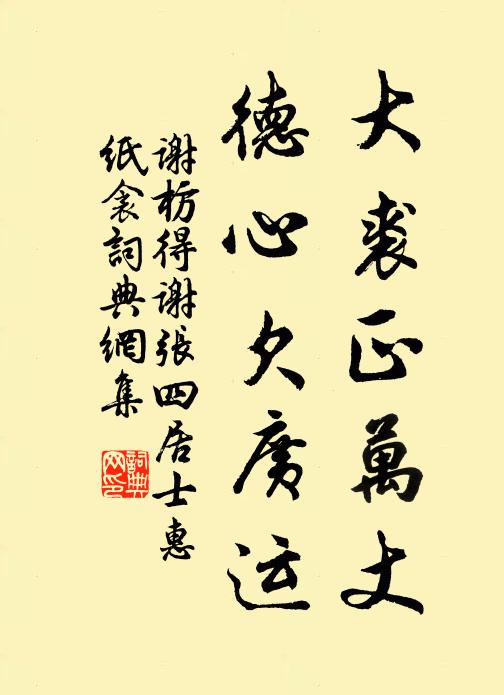 大裘正萬丈
德心欠廣运
謝枋得謝張四居士惠
紙衾詞典網集
詞典网印